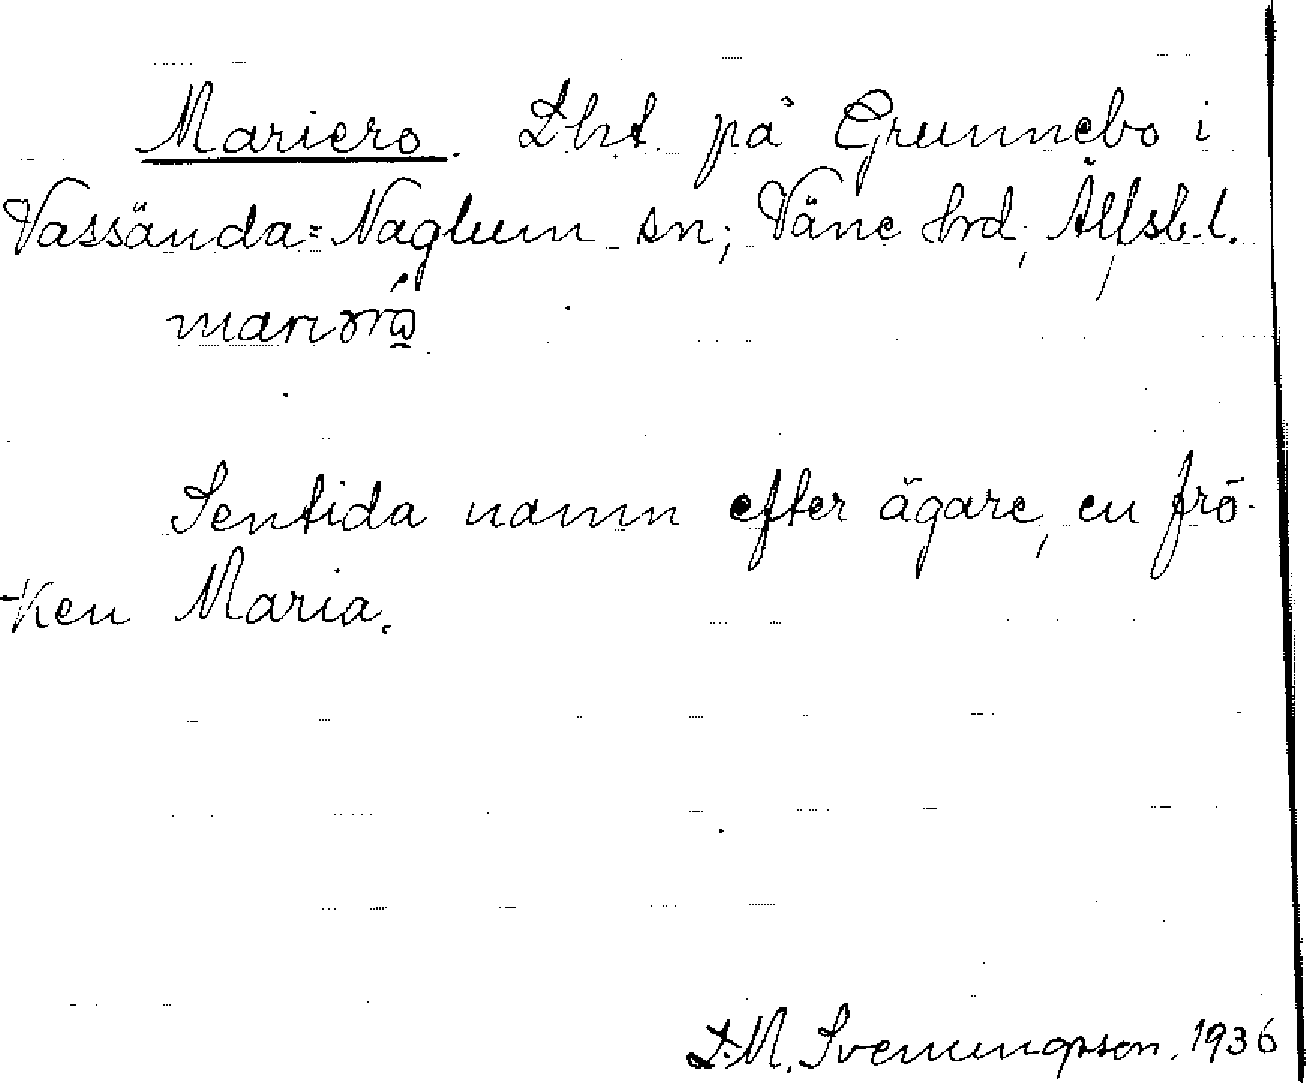 Mariero. Lht. på Grunnebo i
Vassända=Naglum sn; Väne hrd; Älfsb.l.
Sentida namn efter ägare, en frö-
ken Maria.
D.M. Svenungsson. 1936